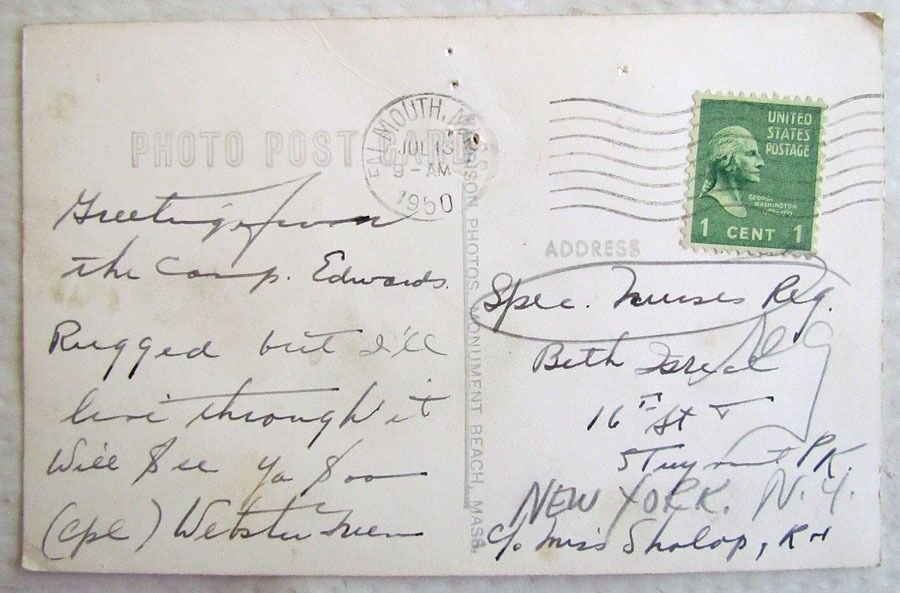 PHOTO POST CARD
FALMOUTH, MA
JUL 13
9 - AM
1950
UNITED
STATES
POSTAGE
GEORGE
WASHINGTON
1 CENT 1
ADDRESS
Greetings from
the Camp. Edwards.
Rugged but I'll
live through it
Will See Ya Soon
(Cpl) Webster
PHOTOS MONUMENT BEACH MASS.
Spec. Nurses Reg.
Beth Isreal
16th St
Stuyvsnt PK.
NEW YORK. N.Y.
c/o Miss Sholop, RN